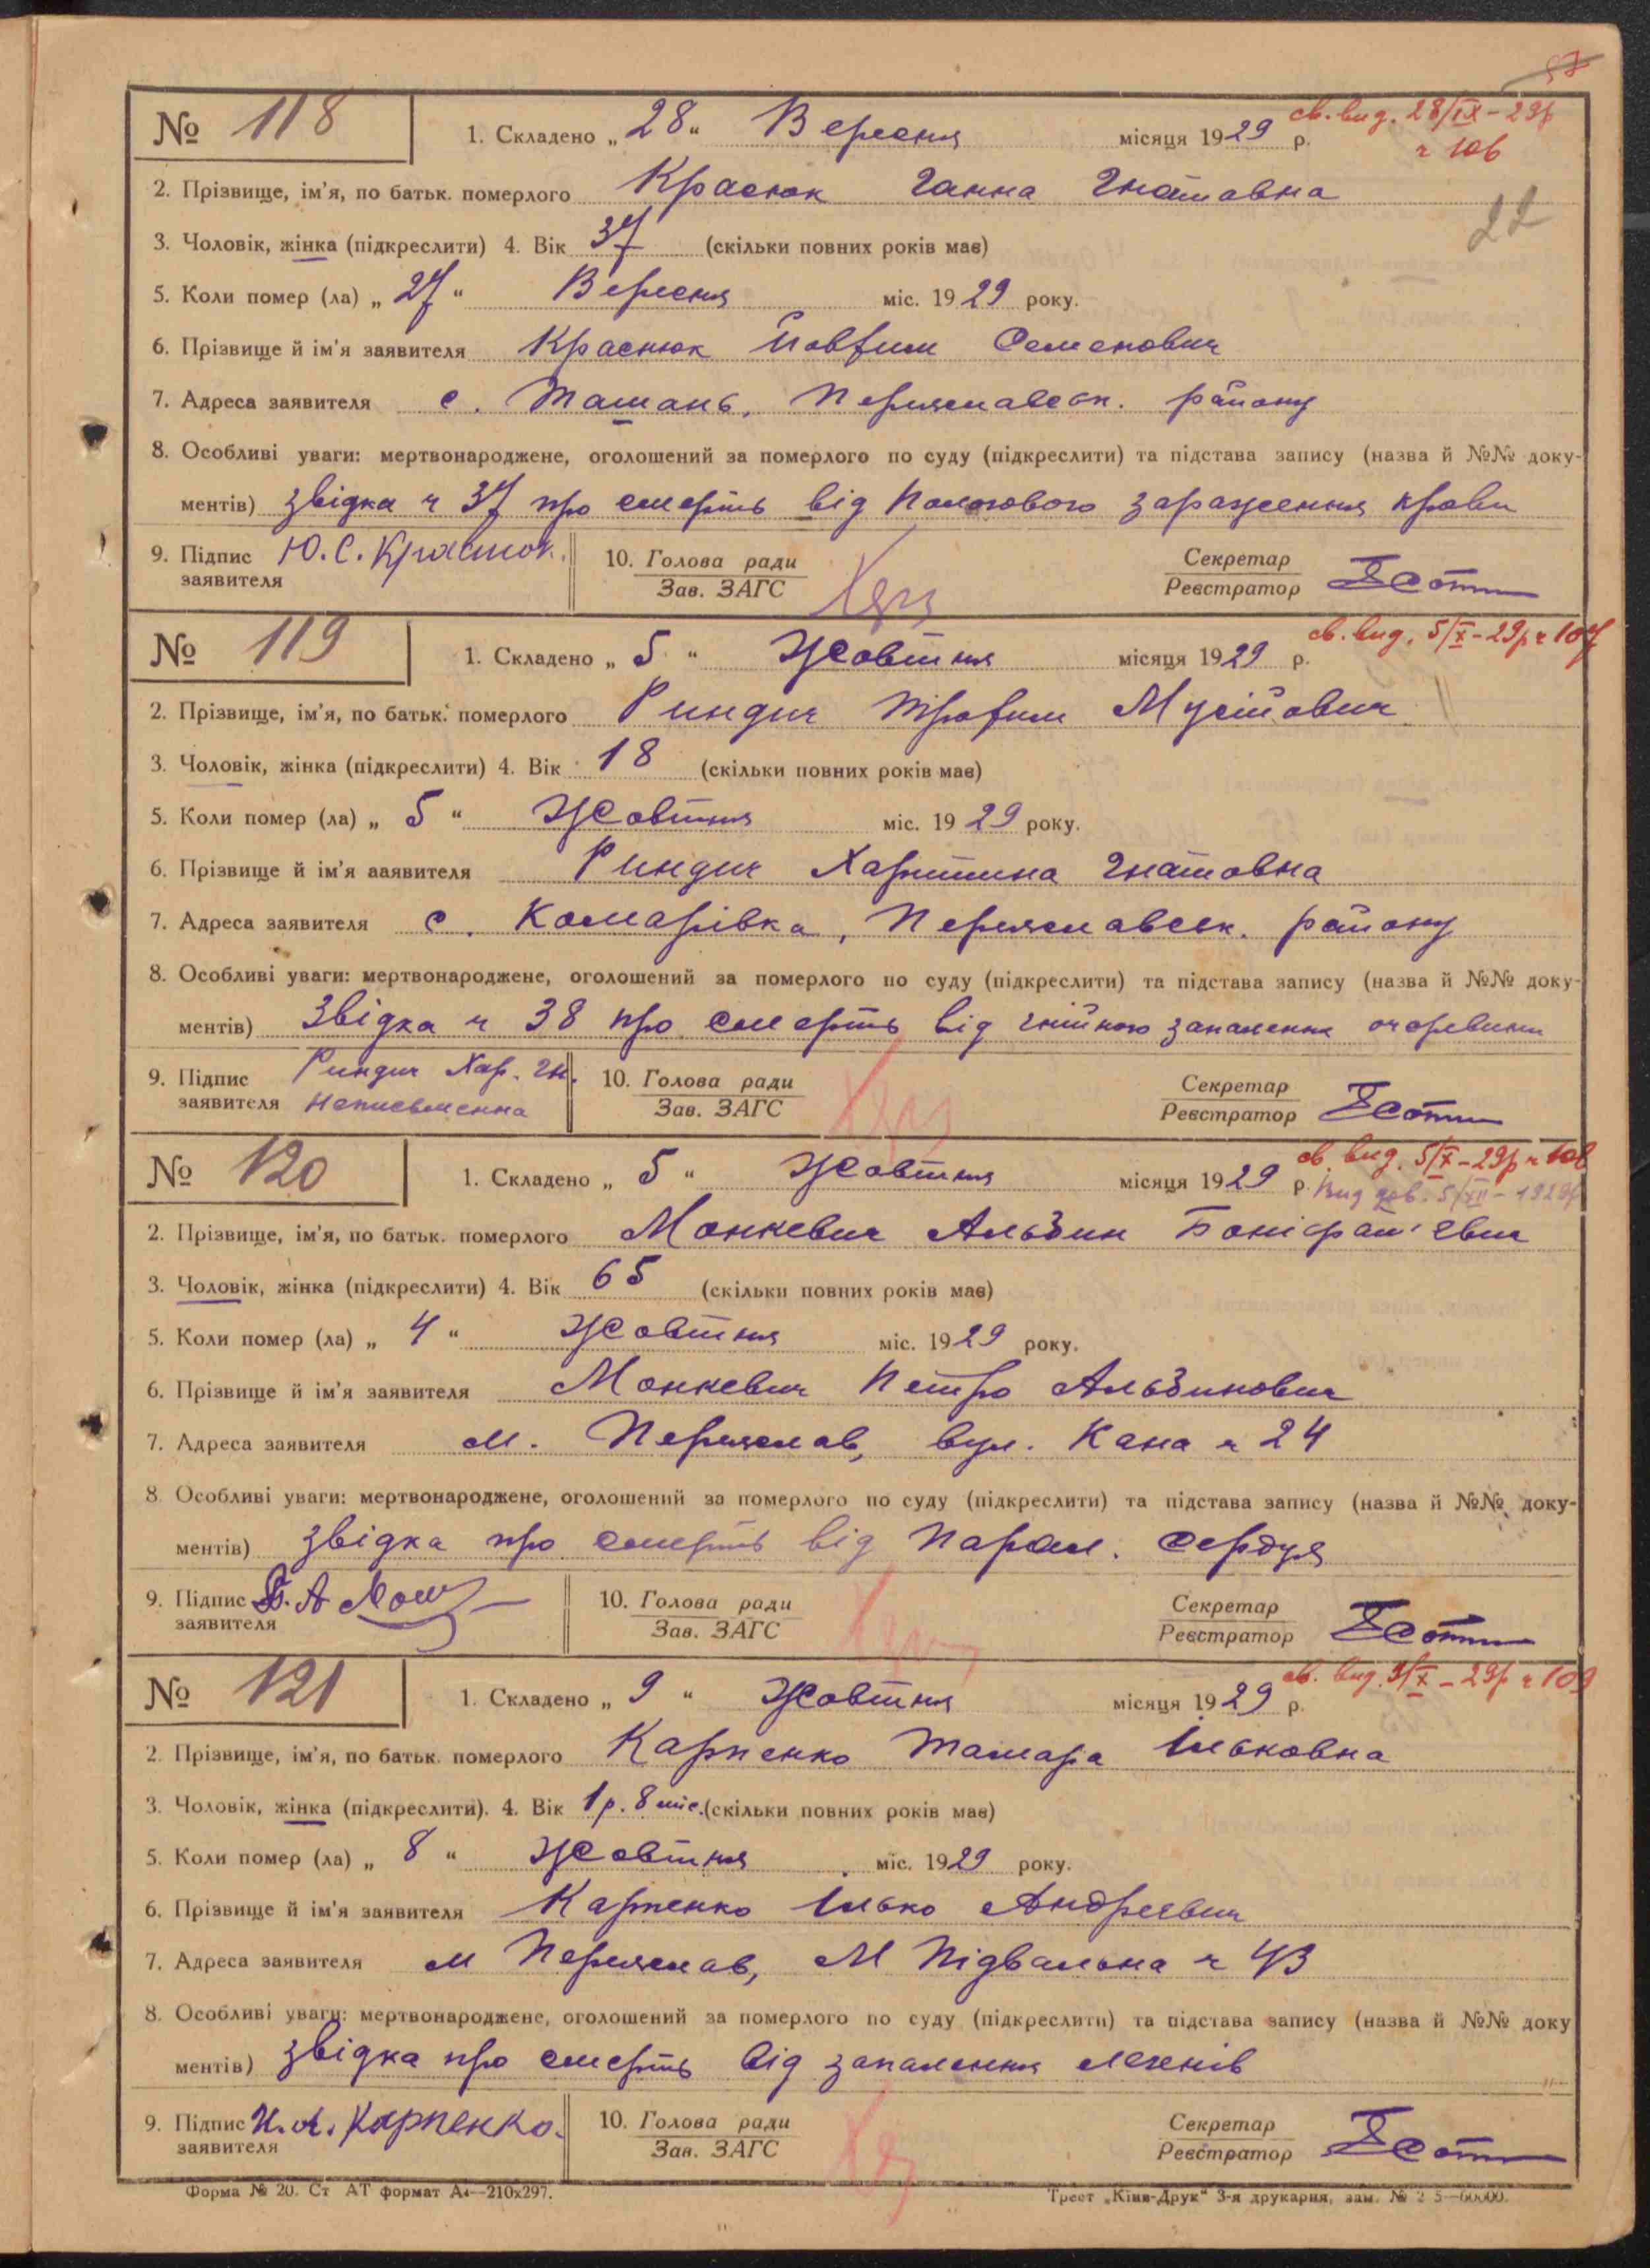 57
№ 118 1. Складено „28“ Вересня місяця 1929 р. св. вид. 28/IX-29р
ч 106
2. Прізвище, ім’я, по батьк. померлого Краснюк Ганна Гнатовна
22
3. Чоловік, жінка (підкреслити) 4. Вік 37 (скільки повних років має)
5. Коли помер (ла) „27“ Вересня міс. 1929 року.
6. Прізвище й ім’я заявителя Краснюк Йовфим Семенович
7. Адреса заявителя с. Ташань, Переяславськ. району
8. Особливі уваги: мертвонароджене, оголошений за померлого по суду (підкреслити) та підстава запису (назва й №№ доку-
ментів) звідка ч 37 про смерть від Пологового зараження крови
9. Підпис Ю. С. Краснюк. 10. Голова ради Секретар
заявителя Зав. ЗАГС Реєстратор
№ 119 1. Складено „5“ Жовтня місяця 1929 р. св. вид. 5/X-29р ч 107
2. Прізвище, ім’я, по батьк. померлого Риндич Трофим Мусійович
3. Чоловік, жінка (підкреслити) 4. Вік 18 (скільки повних років має)
5. Коли помер (ла) „5“ Жовтня міс. 1929 року.
6. Прізвище й ім’я заявителя Риндич Харитина Гнатовна
7. Адреса заявителя с. Комарівка, Переяславськ. району
8. Особливі уваги: мертвонароджене, оголошений за померлого по суду (підкреслити) та підстава запису (назва й №№ доку-
ментів) Звідка ч 38 про смерть від гнійного запалення очеревини
9. Підпис Риндич Хар. Гн. 10. Голова ради Секретар
заявителя неписьменна Зав. ЗАГС Реєстратор
№ 120 1. Складено „5“ Жовтня місяця 1929 р. св. вид. 5/X-29р ч 108
Вид дов. 5/XII-1929р
2. Прізвище, ім’я, по батьк. померлого Монкевич Альбин Боніфат'євич
3. Чоловік, жінка (підкреслити) 4. Вік 65 (скільки повних років має)
5. Коли помер (ла) „4“ Жовтня міс. 1929 року.
6. Прізвище й ім’я заявителя Монкевич Петро Альбинович
7. Адреса заявителя м. Переяслав, вул. Кана ч 24
8. Особливі уваги: мертвонароджене, оголошений за померлого по суду (підкреслити) та підстава запису (назва й №№ доку-
ментів) звідка про смерть від Парал. Сердця
9. Підпис 10. Голова ради Секретар
заявителя Зав. ЗАГС Реєстратор
№ 121 1. Складено „9“ Жовтня місяця 1929 р. св. вид. 9/X-29р ч 109
2. Прізвище, ім’я, по батьк. померлого Карпенко Тамара Ільковна
3. Чоловік, жінка (підкреслити). 4. Вік 1р. 8 міс. (скільки повних років має)
5. Коли помер (ла) „8“ Жовтня міс. 1929 року.
6. Прізвище й ім’я заявителя Карпенко Ілько Андреєвич
7. Адреса заявителя м Переяслав, М Підвальна ч 43
8. Особливі уваги: мертвонароджене, оголошений за померлого по суду (підкреслити) та підстава запису (назва й №№ доку
ментів) звідка про смерть від запалення легенів
9. Підпис И. А. Карпенко. 10. Голова ради Секретар
заявителя Зав. ЗАГС Реєстратор
Форма № 20. Ст АТ формат А4—210х297. Трест „Київ-Друк“ 3-я друкарня, зам. №